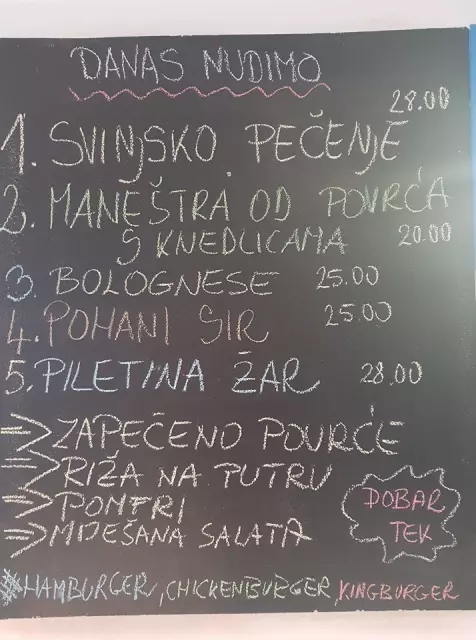 DANAS NUDIMO
28.00
1. SVINJSKO PEČENJE
2. MANEŠTRA OD POVRĆA
S KNEDLICAMA 20.00
3. BOLOGNESE 25.00
4. POHANI SIR 25.00
5. PILETINA ŽAR 28.00
=> ZAPEČENO POVRĆE
=> RIŽA NA PUTRU
=> POMFRI
=> MIJEŠANA SALATA
DOBAR
TEK
HAMBURGER, CHICKENBURGER, KINGBURGER